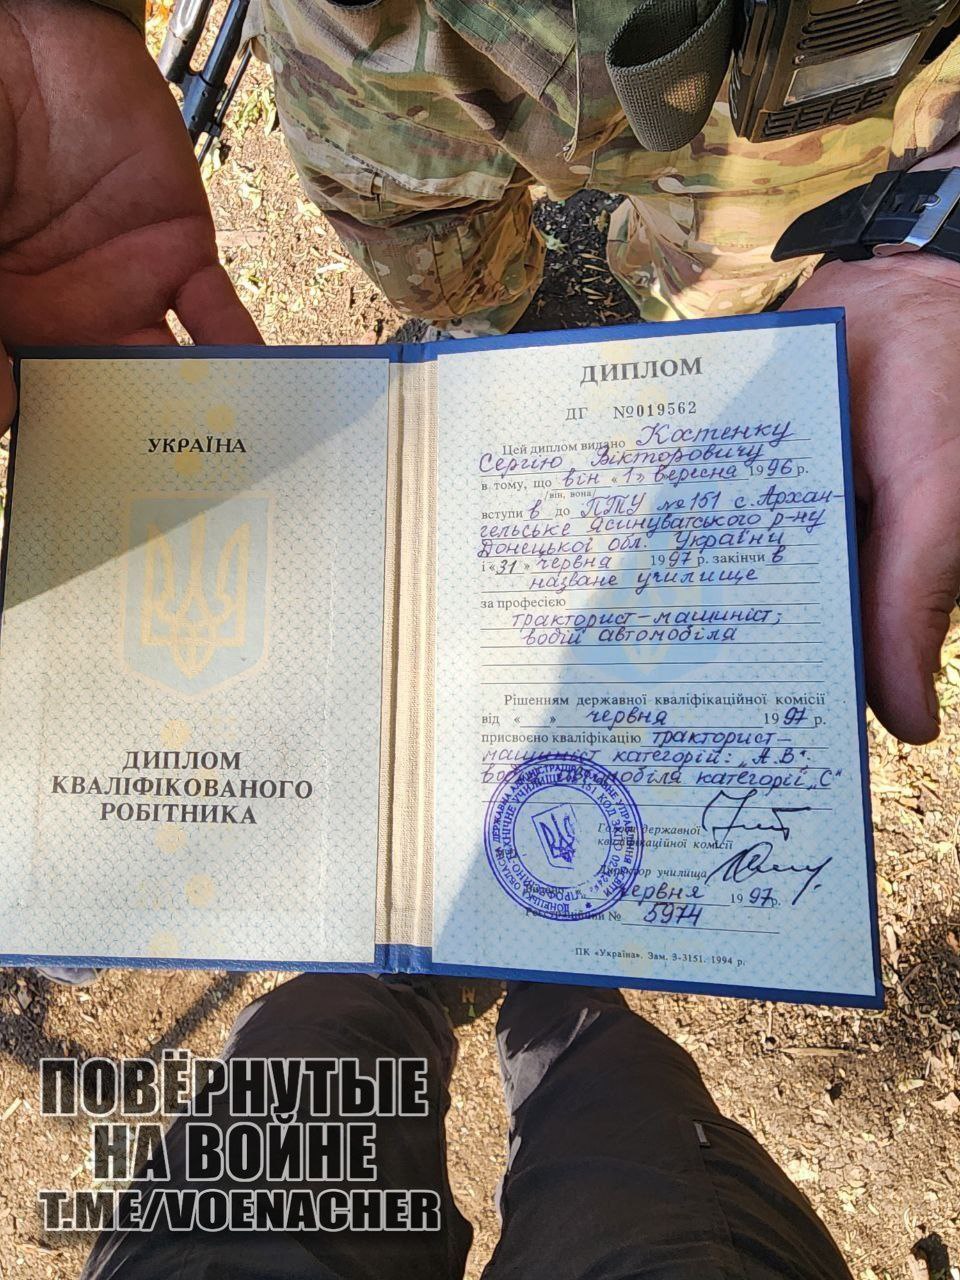 УКРАЇНА
ДИПЛОМ
КВАЛІФІКОВАНОГО
РОБІТНИКА
ДИПЛОМ
ДГ №019562
Цей диплом видано Костенку
Сергію Вікторовичу
в тому, що він «1» вересня 1996 р.
/він, вона/
вступив до ПТУ №151 с. Архан-
гельське Ясинуватського р-ну
Донецької обл. України
і «31» червня 1997 р. закінчив
назване училище
за професією
тракторист-машиніст;
водій автомобіля
Рішенням державної кваліфікаційної комісії
від « » червня 1997 р.
присвоєно кваліфікацію тракторист-
машиніст категорій: „А.В".
водій автомобіля категорії „С"
Голова державної
кваліфікаційної комісії
Директор училища
червня 1997 р.
Реєстраційний № 5974
ПК «Україна». Зам. 3-3151. 1994 р.
ПОВЁРНУТЫЕ
НА ВОЙНЕ
T.ME/VOENACHER